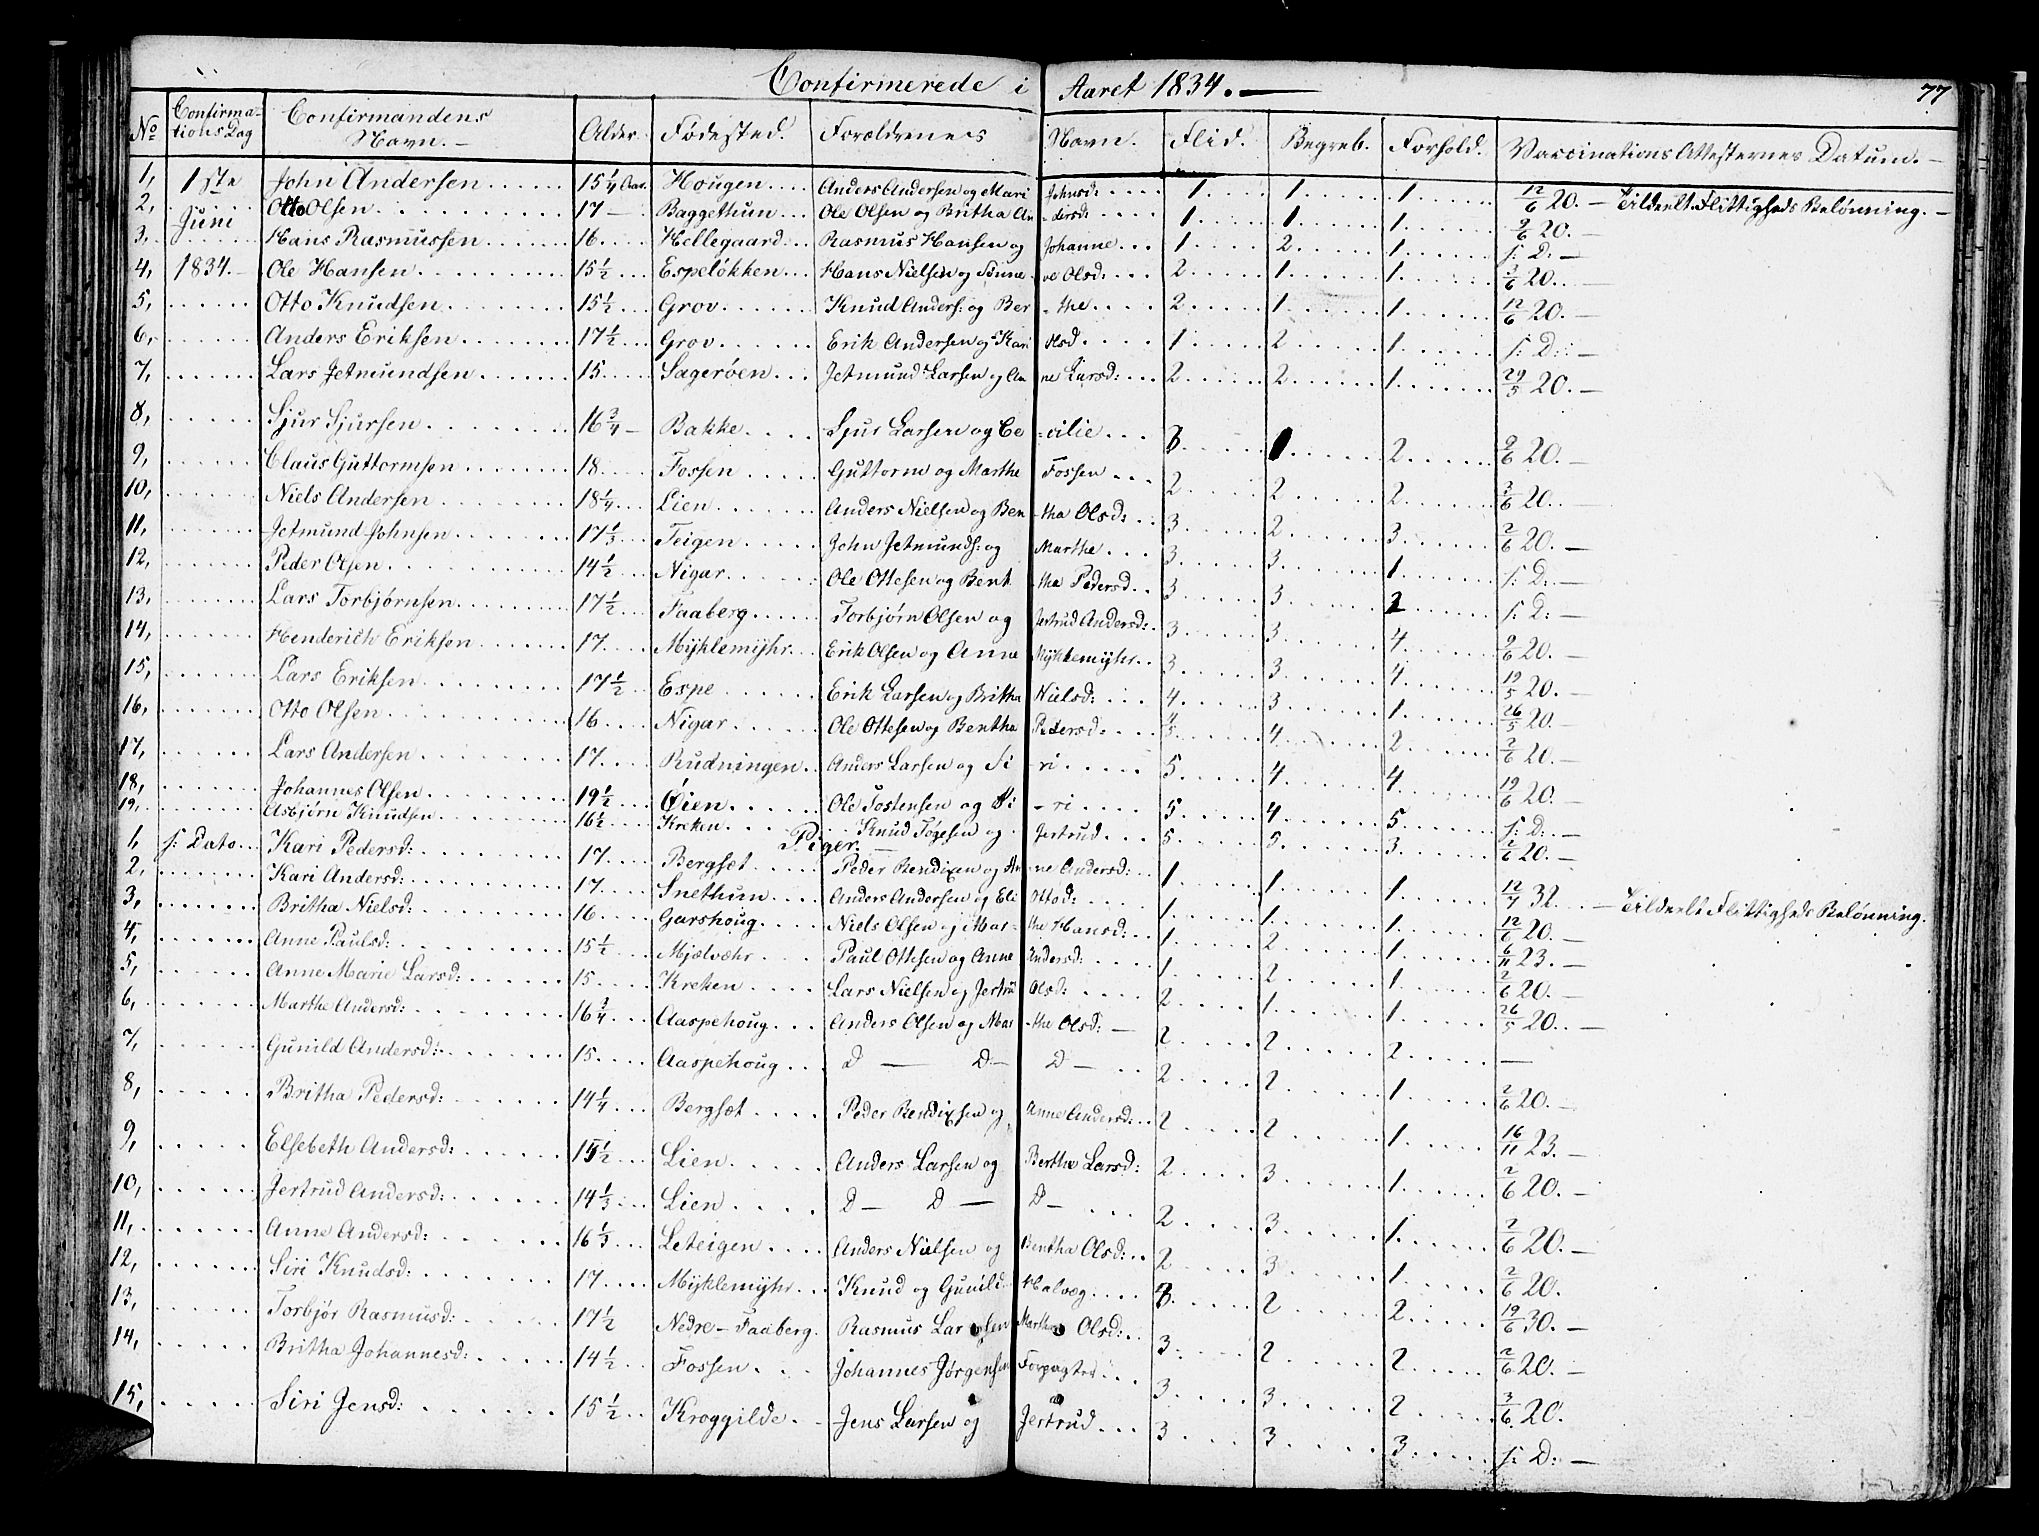 Confirmerede i Aaret 1834. — 77
No Confirmations Dag Confirmandens Navn. — Alder. Fødested. Forældrenes Navn. Flid. Begreb. Forhold. Vaccinations Attesternes Datum. —
1, 1ste John Andersen 15 1/4 Aar. Hougen Anders Andersen og Mari Johnsd: 1. 1. 1. 12/6 20. — Tildeelt Flittigheds Belønning. —
2, Juni Otto Olsen 17 — Baggethun Ole Olsen og Britha Andersd: 1. 1. 1. 2/6 20. —
3, Hans Rasmussen 16. Hellegaard Rasmus Hansen og Johanne 1. 2. 1. s: D: —
4, 1834. Ole Hansen 15 1/2 Espeløkken Hans Nielsen og Sunneve Olsd: 2. 1. 1. 2/6 20. —
5, Otto Knudsen 15 1/2 Grov Knud Anders: og Berthe 2. 1. 1. 12/6 20. —
6, Anders Eriksen 17 1/2 Grov Erik Andersen og Kari Olsd 1. 2. 1. s: D: —
7, Lars Jetmundsen 15. Sagerøen Jetmund Larsen og Anne Larsd: 2. 2. 1. 29/5 20. —
8, Sjur Sjursen 16 3/4 — Bakke Sjur Larsen og Cecilie 2. 2/6 20. —
9, Claus Guttormsen 18. Fossen Guttorm og Marthe Fossen 2. 2. 2. 3/6 20. —
10, Niels Andersen 18 1/4 Lien Anders Nielsen og Bentha Olsd: 3. 2. 3. 2/6 20. —
11, Jetmund Johnsen 17 1/3 Teigen John Jetmunds: og Marthe 3. 3. 1. s: D: —
12, Peder Olsen 14 1/2 Nigar Ole Ottesen og Bentha Pedersd 3. 3. 2. s: D: —
13, Lars Torbjørnsen 17 1/2 Faaberg Torbjørn Olsen og Jertrud Andersd: 3. 3. 4. 2/6 20. —
14, Henderich Eriksen 17. Myklemyhr Erik Olsen og Anne Myklemyhr 3. 3. 4. 19/5 20. —
15, Lars Eriksen 17 1/2 Espe Erik Larsen og Britha Nielsd: 4. 3. 1. 26/5 20. —
16, Otto Olsen 16. Nigar Ole Ottesen og Bentha Pedersd: 4. 2. 2/6 20. —
17, Lars Andersen 17. Rudningen Anders Larsen og Siri 5. 4. 4. 19/6 20. —
18, Johannes Olsen 19 1/2 Øien Ole Tostensen og Siri 5. 4. 5. s: D: —
19, Asbjørn Knudsen 16 1/2 Kreken Knud Tøgesen og Jertrud 5. 5. 3. 2/6 20. —
Piger. —
1, s: Dato Kari Pedersd: 17. Bergset Peder Bendixen og Anne Andersd: 1. 1. 1. 12/7 32. — Tildeelt Flittigheds Belønning.
2, Kari Andersd: 17. Snethun Anders Andersen og Eli Ottod: 1. 1. 1. 12/6 20. —
3, Britha Nielsd: 16. Garshoug Niels Olsen og Marthe Hansd: 1. 2. 1. 6/11 23. —
4, Anne Paulsd: 15 1/2 Mjelvæhr Paul Ottesen og Anne Andersd: 1. 2. 1. 2/6 20. —
5, Anne Marie Larsd: 15. Kreken Lars Nielsen og Jertru Olsd: 2. 1. 1. 26/5 20. —
6, Marthe Andersd: 16 3/4 Aaspehoug Anders Olsen og Marthe Olsd: — 2. 2. 2. —
7, Gunild Andersd: 15. Aaspehoug D — D — D — 2. 2. 1. 2/6 20. —
8, Britha Pedersd: 14 1/4 Bergset Peder Bendixsen og Anne Andersd: 2. 2. 1. 16/11 23. —
9, Elsebeth Andersd: 15 1/2 Lien Anders Larsen og Berthe Larsd: 2. 3. 1. 2/6 20. —
10, Jertrud Andersd: 14 1/3 Lien D — D — D — 2. 3. 1. 2/6 20. —
11, Anne Andersd: 16 1/3 Leteigen Anders Nielsen og Bentha Olsd: 2. 3. 1. 2/6 20.
12, Siri Knudsd: 17. Myklemyhr Knud og Gunild Halvæg 2. 2. 19/6 30. —
13, Torbjør Rasmusd: 17 1/2 Nedre-Faaberg. Rasmus Larsen Marthe Olsd: 3. 2. 2. 2/6 20. —
14, Britha Johannesd: 14 1/2 Fossen Johannes Jørgensen Forpagter 3. 3. 2. 3/6 20.
15, Siri Jensd: 15 1/2 Kroggilde. Jens Larsen og Jertrud 3. 3. 3. s: D: —